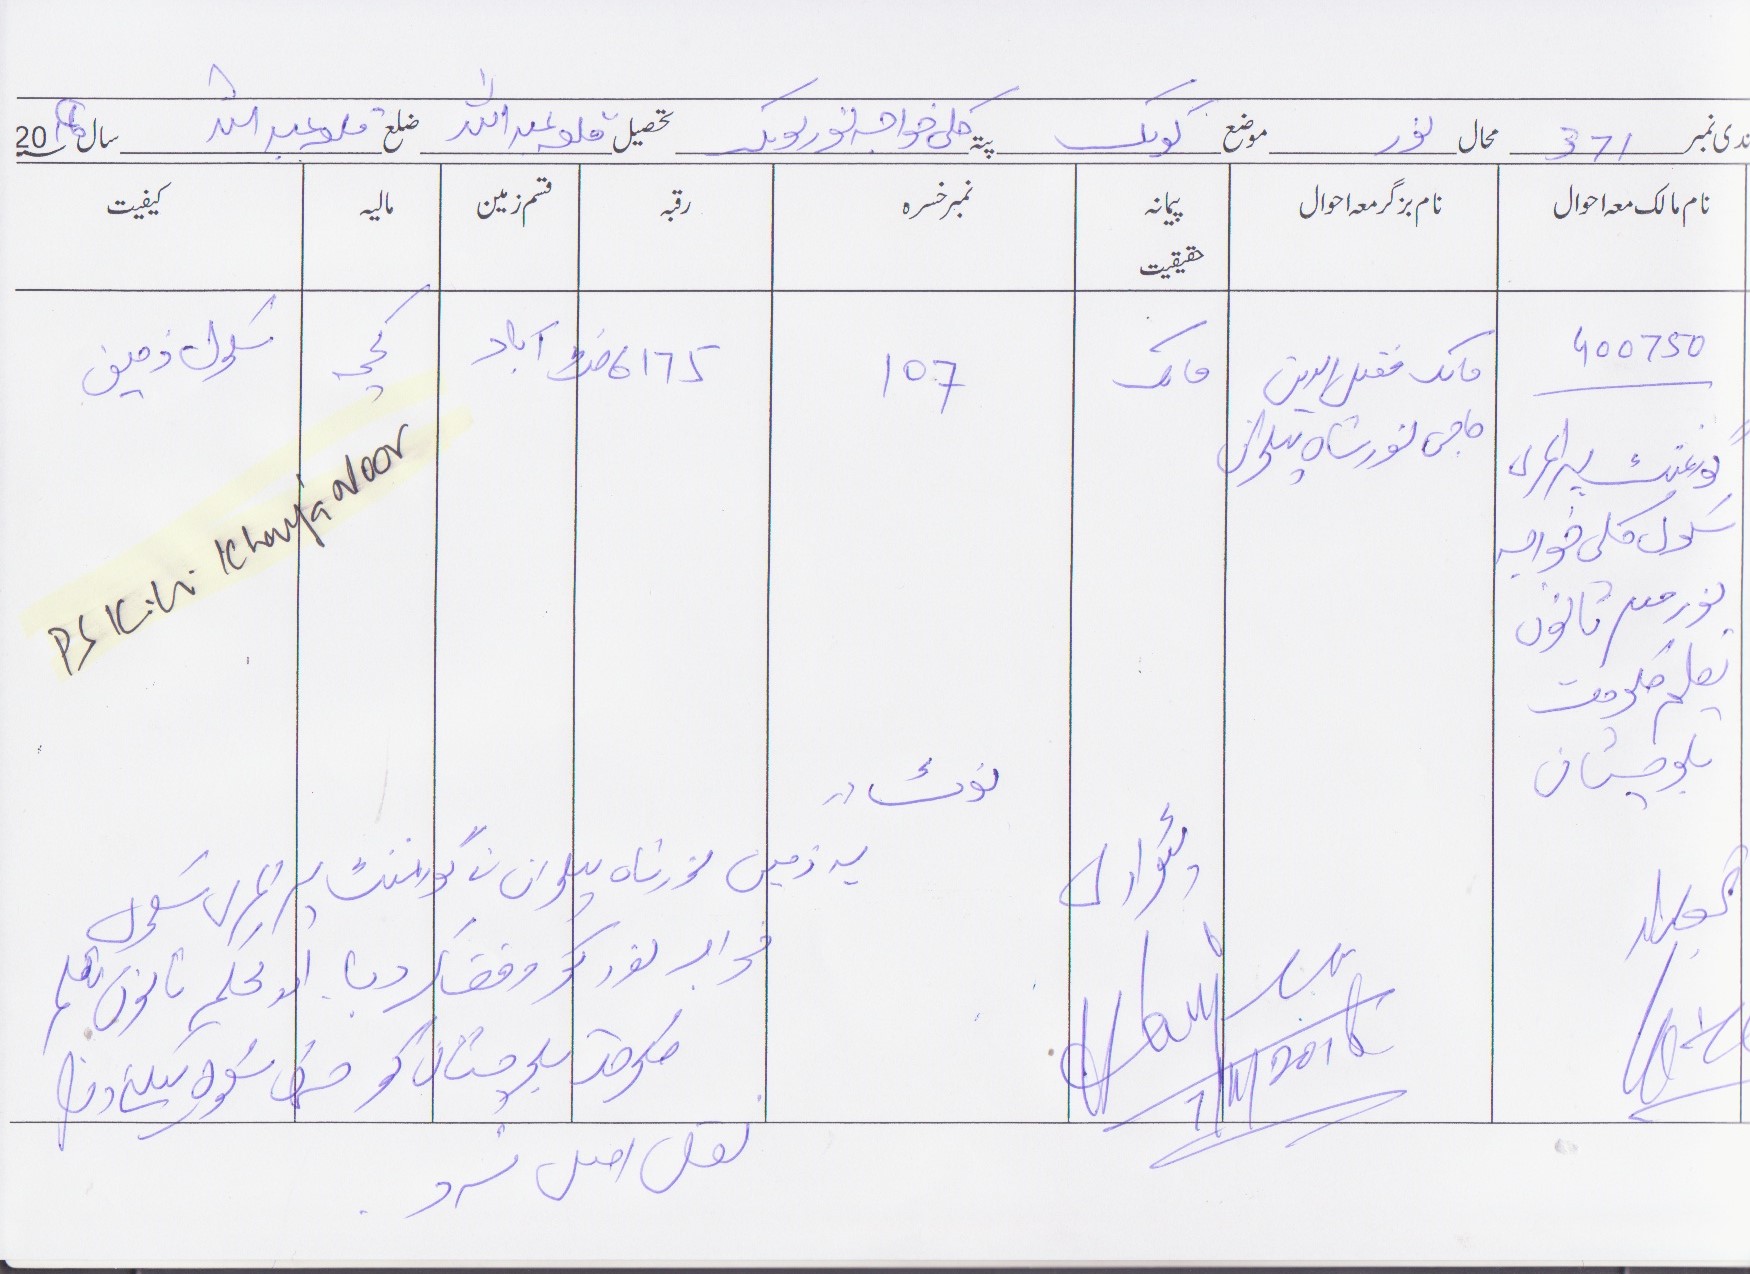 ندی نمبر 371 محال نور موضع کوبک پتہ کلی خواجہ نور کوبک تحصیل قلعہ عبداللہ ضلع قلعہ عبداللہ سال 2016
نام مالک معہ احوال نام بزگر معہ احوال پیمانہ حقیقیت نمبر خسرہ رقبہ قسم زمین مالیہ کیفیت
400750
گورنمنٹ پرائمری
سکول کلی خواجہ
نور
تعلیم حکومت
بلوچستان
مالک
حاجی نور شاہ پہلوان
مالک
107
6175 فٹ
آباد
کچہ
سکول زمین
PS Kili Khawja Noor
نوٹ
یہ زمین نور شاہ پہلوان نے گورنمنٹ پرائمری سکول
خواجہ نور کو وقف کر دیا
حکومت بلوچستان کو سکول کیلئے
پٹواری
1/11/2016
نقل اصل